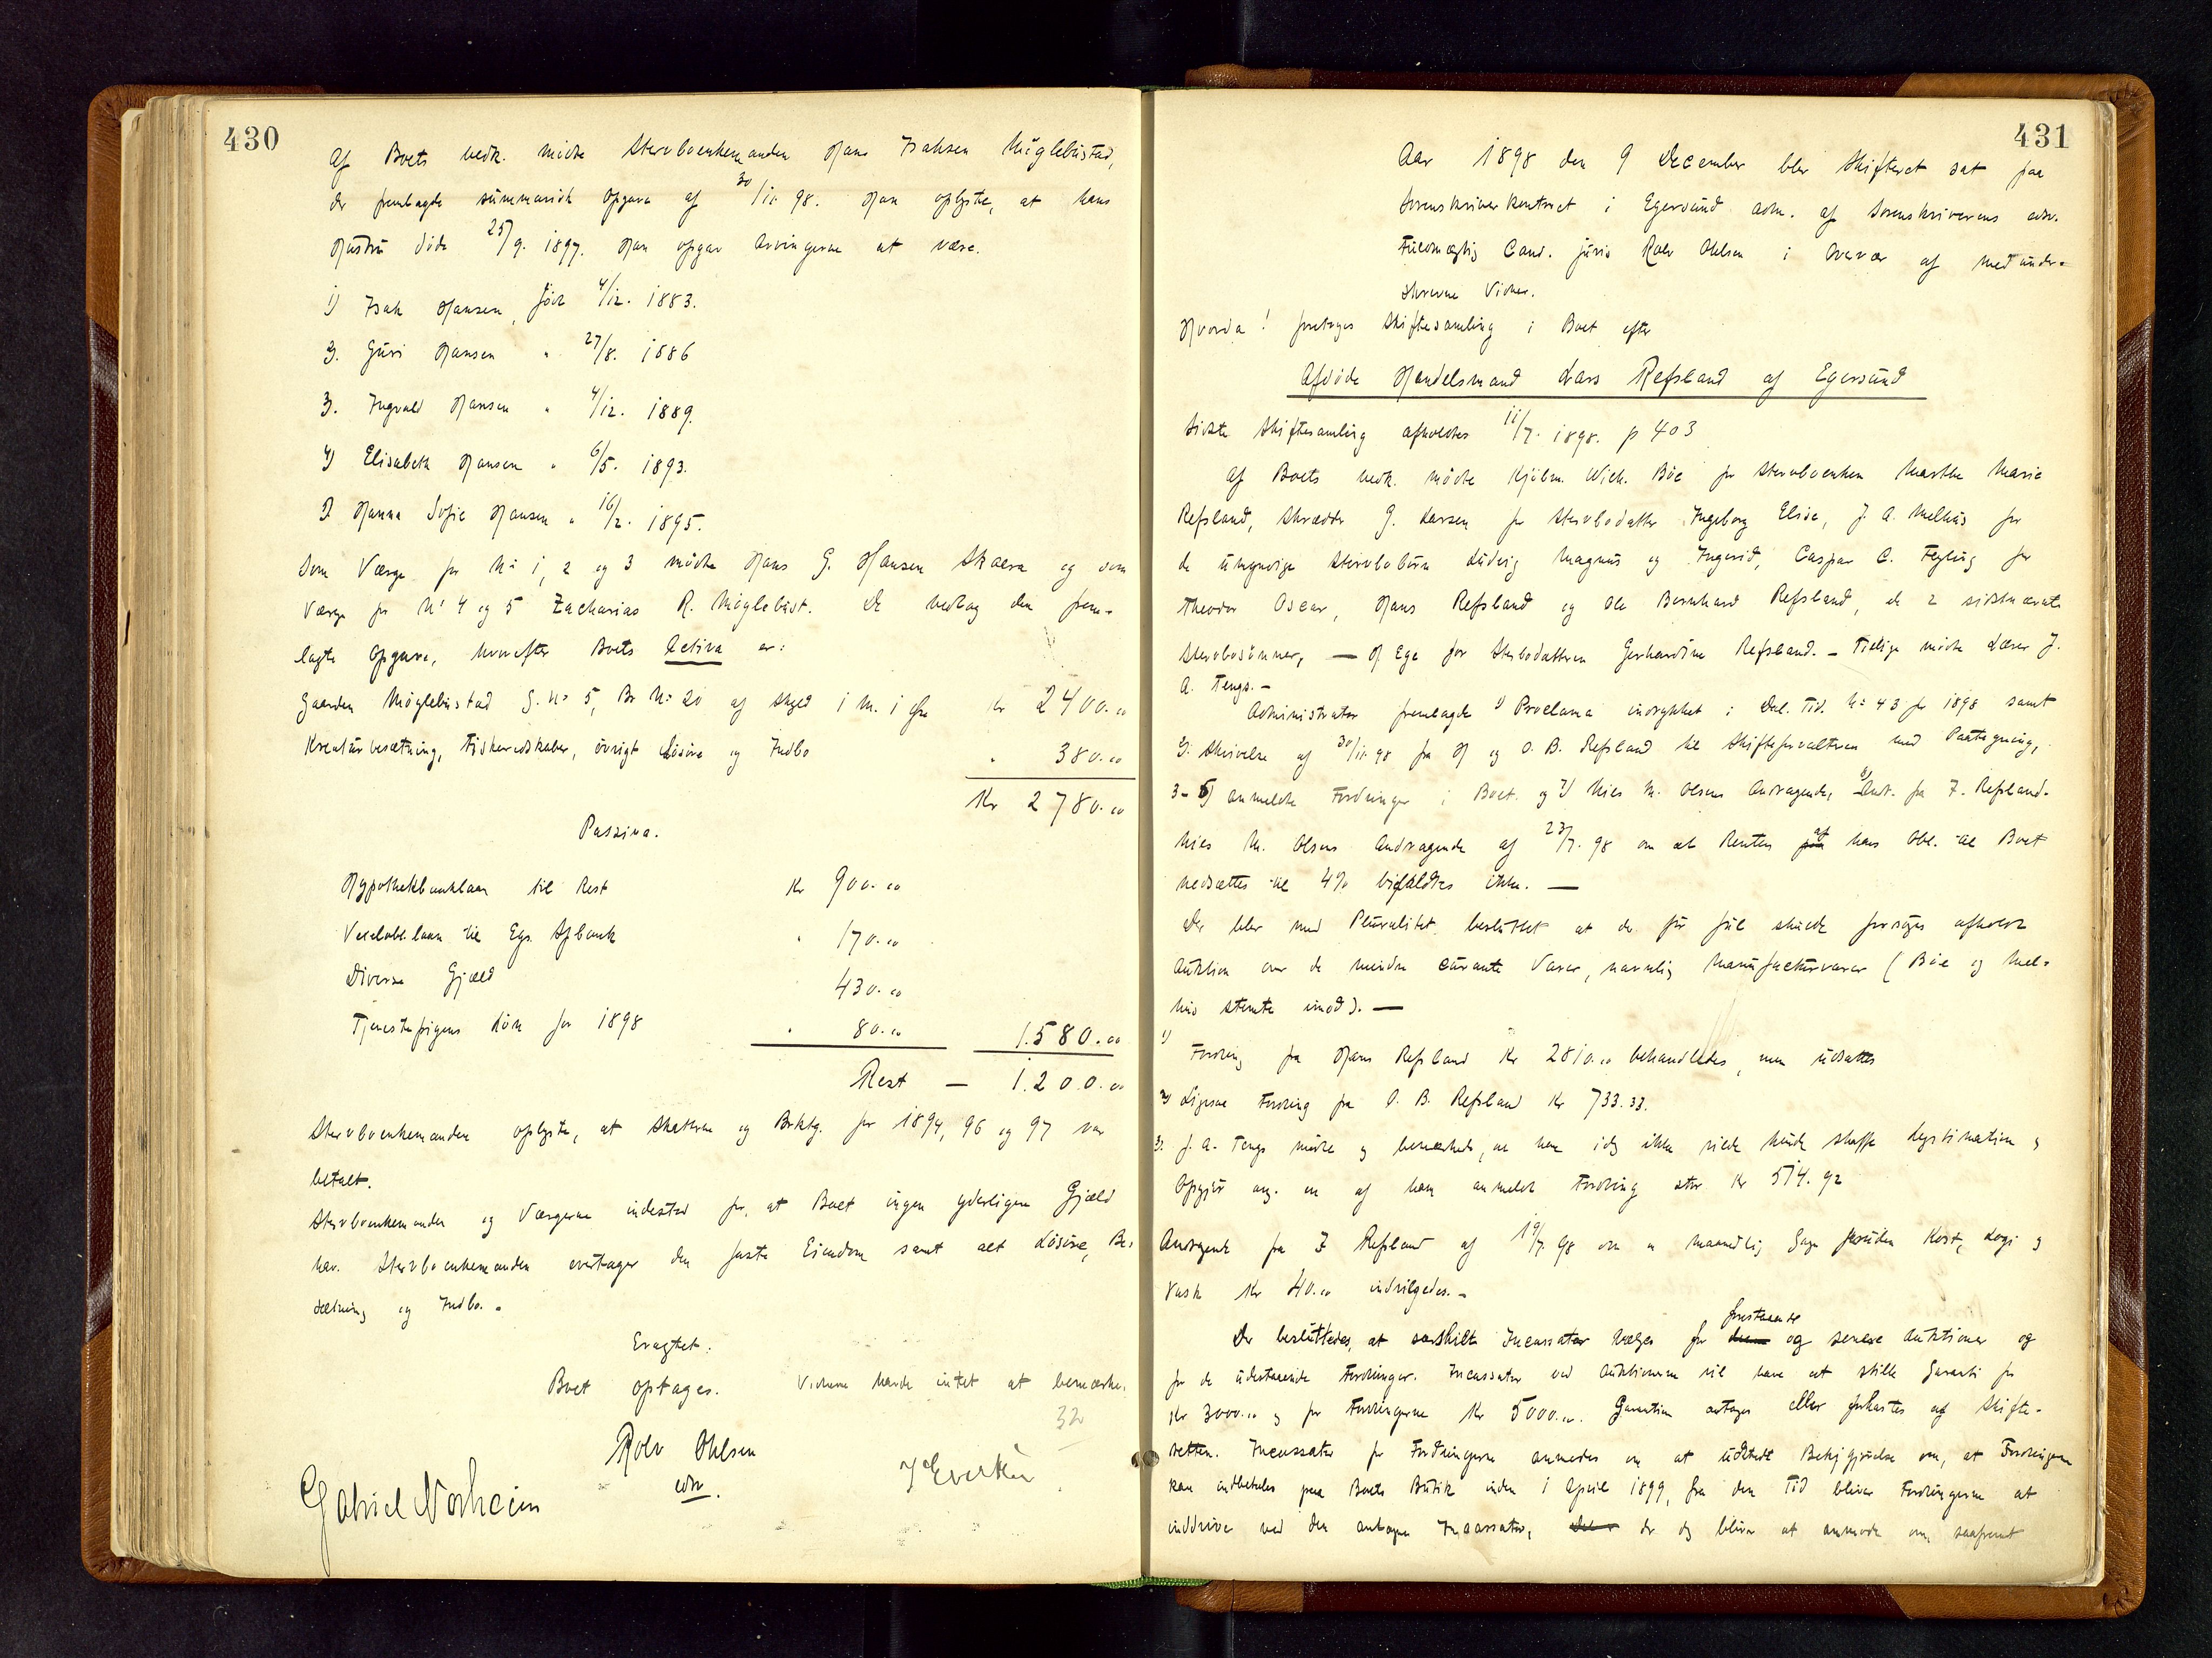 430
Af Boets vedk. mødte Stervboenkemanden Hans Isaksen Møglebustad,
der fremlagde summarisk Opgave af 30/11. 98. Han oplyste, at hans
Hustru døde 25/9. 1897. Han opgav Arvingerne at være.
1) Isak Hansen, født 4/12. 1883.
2. Guri Hansen " 27/8. 1886
3. Ingvald Hansen " 4/12. 1889.
4) Elisabeth Hansen " 6/5. 1893.
5 Hanna Sofie Hansen " 16/2. 1895.
Som Værge for No 1, 2 og 3 mødte Hans G. Hansen Skaara og som
Værge for No 4 og 5 Zacharias R. Møglebust. De vedtog den frem-
lagte Opgave, hvorefter Boets Activa er:
Gaarden Møglebustad G. No 5, Br No 20 af Skyld 1 M. 1 Øre kr 2400.00
Kreaturbesætning, Fiskeredskaber, øvrigt Løsøre og Indbo " 380.00
Kr 2780.00
Passiva.
Hypothekbanklaan til Rest Kr 900.00
Vexelobl.laan til Egs. Spbank " 170.00
Diverse Gjæld 430.00
Tjenestepigens Løn for 1898 " 80.00 1.580.00
Rest — 1.200.00
Stervboenkemanden oplyste, at Skatterne og Brktg. for 1894, 96 og 97 var
betalt.
Stervboenkemanden og Værgerne indestod for, at Boet ingen yderligere Gjæld
har. Stervboenkemanden overtager den faste Eiendom samt alt Løsøre, Be-
sætning og Indbo. -
Eragtet:
Boet optages. Vidnerne havde intet at bemærke.
32
Rolv Ohlsen
edsv.
Gabriel Norheim
431
Aar 1898 den 9 December blev Skifteret sat paa
Sorenskriverkontoret i Egersund adm. af Sorenskriverens edsv.
Fuldmægtig Cand. juris Rolv Ohlsen i Overvær af medunder-
skrevne Vidner.
Hvorda! foretoges Skiftesamling i Boet efter
Afdøde Handelsmand Lars Refsland af Egersund
Sidste Skiftesamling afholdtes 11/7. 1898. p 403
Af Boets vedk. mødte Kjøbm. Wich. Bøe for Stervboenken Marthe Marie
Refsland, Skrædder G. Larsen for Stervbodatter Ingeborg Elise, J. A. Melhus for
de umyndige Stervbobørn Ludvig Magnus og Ingerid, Caspar C. Feyling for
Theodor Oscar, Hans Refsland og Ole Bernhard Refsland, de 2 sidstnævnte
Stervbosønner, — H Ege for Stervbodatteren Gerhardine Refsland. - Tillige mødte Lærer J.
A. Tengs. -
Administrator fremlagde 1) Proclama indrykket i Del. Tid. No 43 for 1898 samt
2. Skrivelse af 30/11. 98 fra H og O. B. Refsland til Skifteforvalteren med Paategning,
3-6) anmeldte Fordringer i Boet. og 7) Nils M. Olsens Andragende, 8) And. fra Z. Refsland.
Nils M. Olsens Andragende af 23/7. 98 om at Renten af hans Obl. til Boet
nedsættes til 4% bifaldtes ikke. —
Der blev med Pluralitet besluttet at der før Jul skulde forsøges afholdt
Auktion over de mindre curante Varer, navnlig Manufacturvarer (Bøe og Mel-
hus stemte imod). —
1) Fordring fra Hans Refsland Kr 2810.00 behandledes, men udsattes
2) Ligesaa Fordring fra O. B. Refsland Kr 733.33.
3. J. A. Tengs mødte og bemærkede, at han idag ikke vilde kunde skaffe Legitimation og
Opgjør ang. en af ham anmeldt Fordring stor Kr 514.92
Andragende fra Z Refsland af 19/7. 98 om en maanedlig Gage foruden Kost, Logi og
Vask Kr 40.00 indvilgedes. -
Der besluttedes, at særskilte Incassator vælges for forestaaende og senere Auktioner og
for de udestaaende Fordringer. Incassator ved Auktionerne vil have at stille Garanti for
Kr 3000.00 og for Fordringerne Kr 5000.00. Garantien antages eller forkastes af Skifte-
retten. Incassator for Fordringerne anmodes om at udstede Bekjgjørelse om, at Fordringerne
kan indbetales paa Boets Butik inden 1 April 1899, fra den Tid bliver Fordringerne at
inddrive ved den antagne Incassator, der og bliver at anmode om saafremt